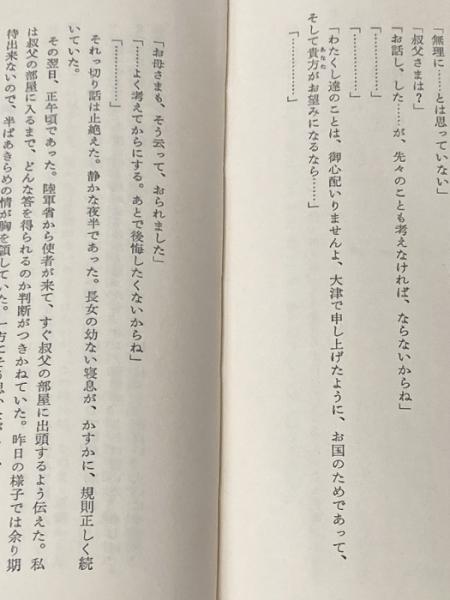 「無理に……とは思っていない」
「叔父さまは？」
「お話し、した……が、先々のことも考えなければ、ならないからね」
「…………」
「…………」
「わたくし達のことは、御心配いりませんよ、大津で申し上げたように、お国のためであって、
そして貴方がお望みになるなら……」
「…………」
「お母さまも、そう云って、おられました」
「……よく考えてからにする。あとで後悔したくないからね」
「…………」
それっ切り話は止絶えた。静かな夜半であった。長女の幼ない寝息が、かすかに、規則正しく続
いていた。
その翌日、正午頃であった。陸軍省から使者が来て、すぐ叔父の部屋に出頭するよう伝えた。私
は叔父の部屋に入るまで、どんな答を得られるのか判断がつきかねていた。昨日の様子では余り期
待出来ないので、半ばあきらめの情が胸を領していた。一方にそう思